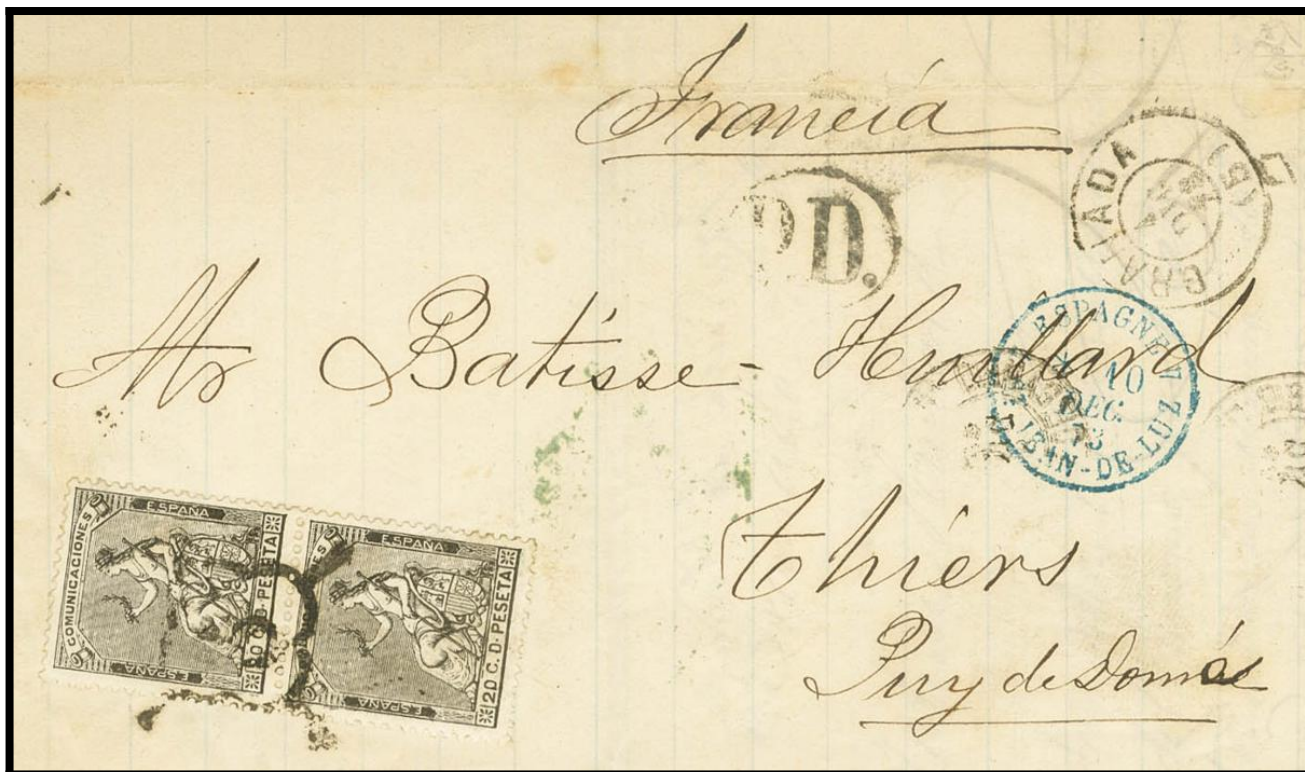 Francia
GRANADA
P.D.
Mr Batisse-Huillard
ESPAGNE
10
DEC.
73
Sᵗ JEAN-DE-LUZ
Thiers
Puy de Dome
ESPAÑA
COMUNICACIONES
20 C. D. PESETA
ESPAÑA
ESPAÑA
20 C. D. PESETA
ESPAÑA